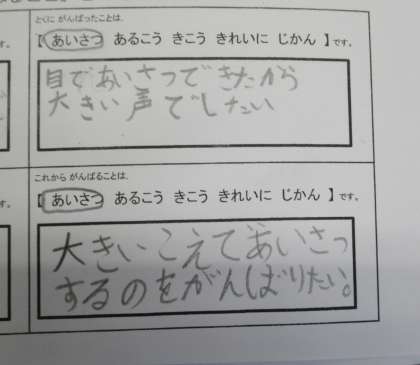 とくに がんばったことは、
【 あいさつ あるこう きこう きれいに じかん 】です。
す。
目であいさつできたから
大きい声でしたい
これから がんばることは、
【 あいさつ あるこう きこう きれいに じかん 】です。
す。
大きいこえてあいさつ
するのをがんばりたい。